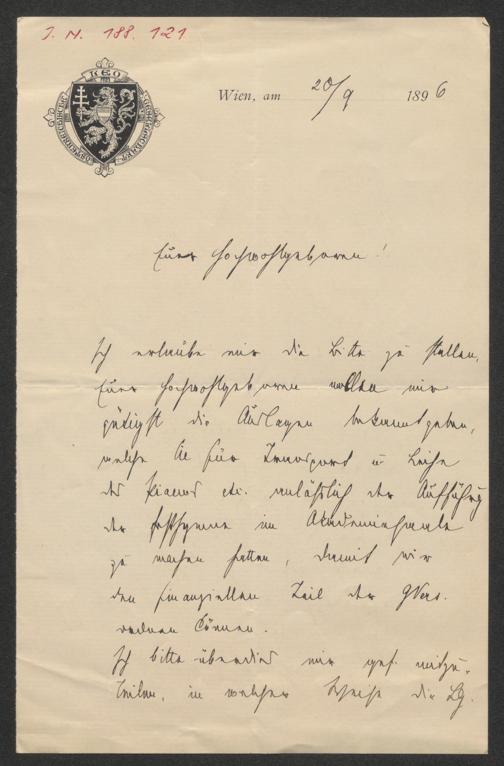 J. N. 188. 121
LEO
Wien, am 20/9 1896
Euer Hochwohlgeboren!
Ich erlaube mir die Bitte zu stellen,
Euer Hochwohlgeboren wollen mir
gütigst die Auslagen bekanntgeben,
welche Sie für Transport u Leihe
des Pianos etc. anläßlich der Aufführg
der Festhymne im Akademiesaale
zu machen hatten, damit wir
den finanziellen Teil der GVers.
ordnen können.
Ich bitte überdies mir gef. mitzu-
teilen, in welcher Weise die LG.